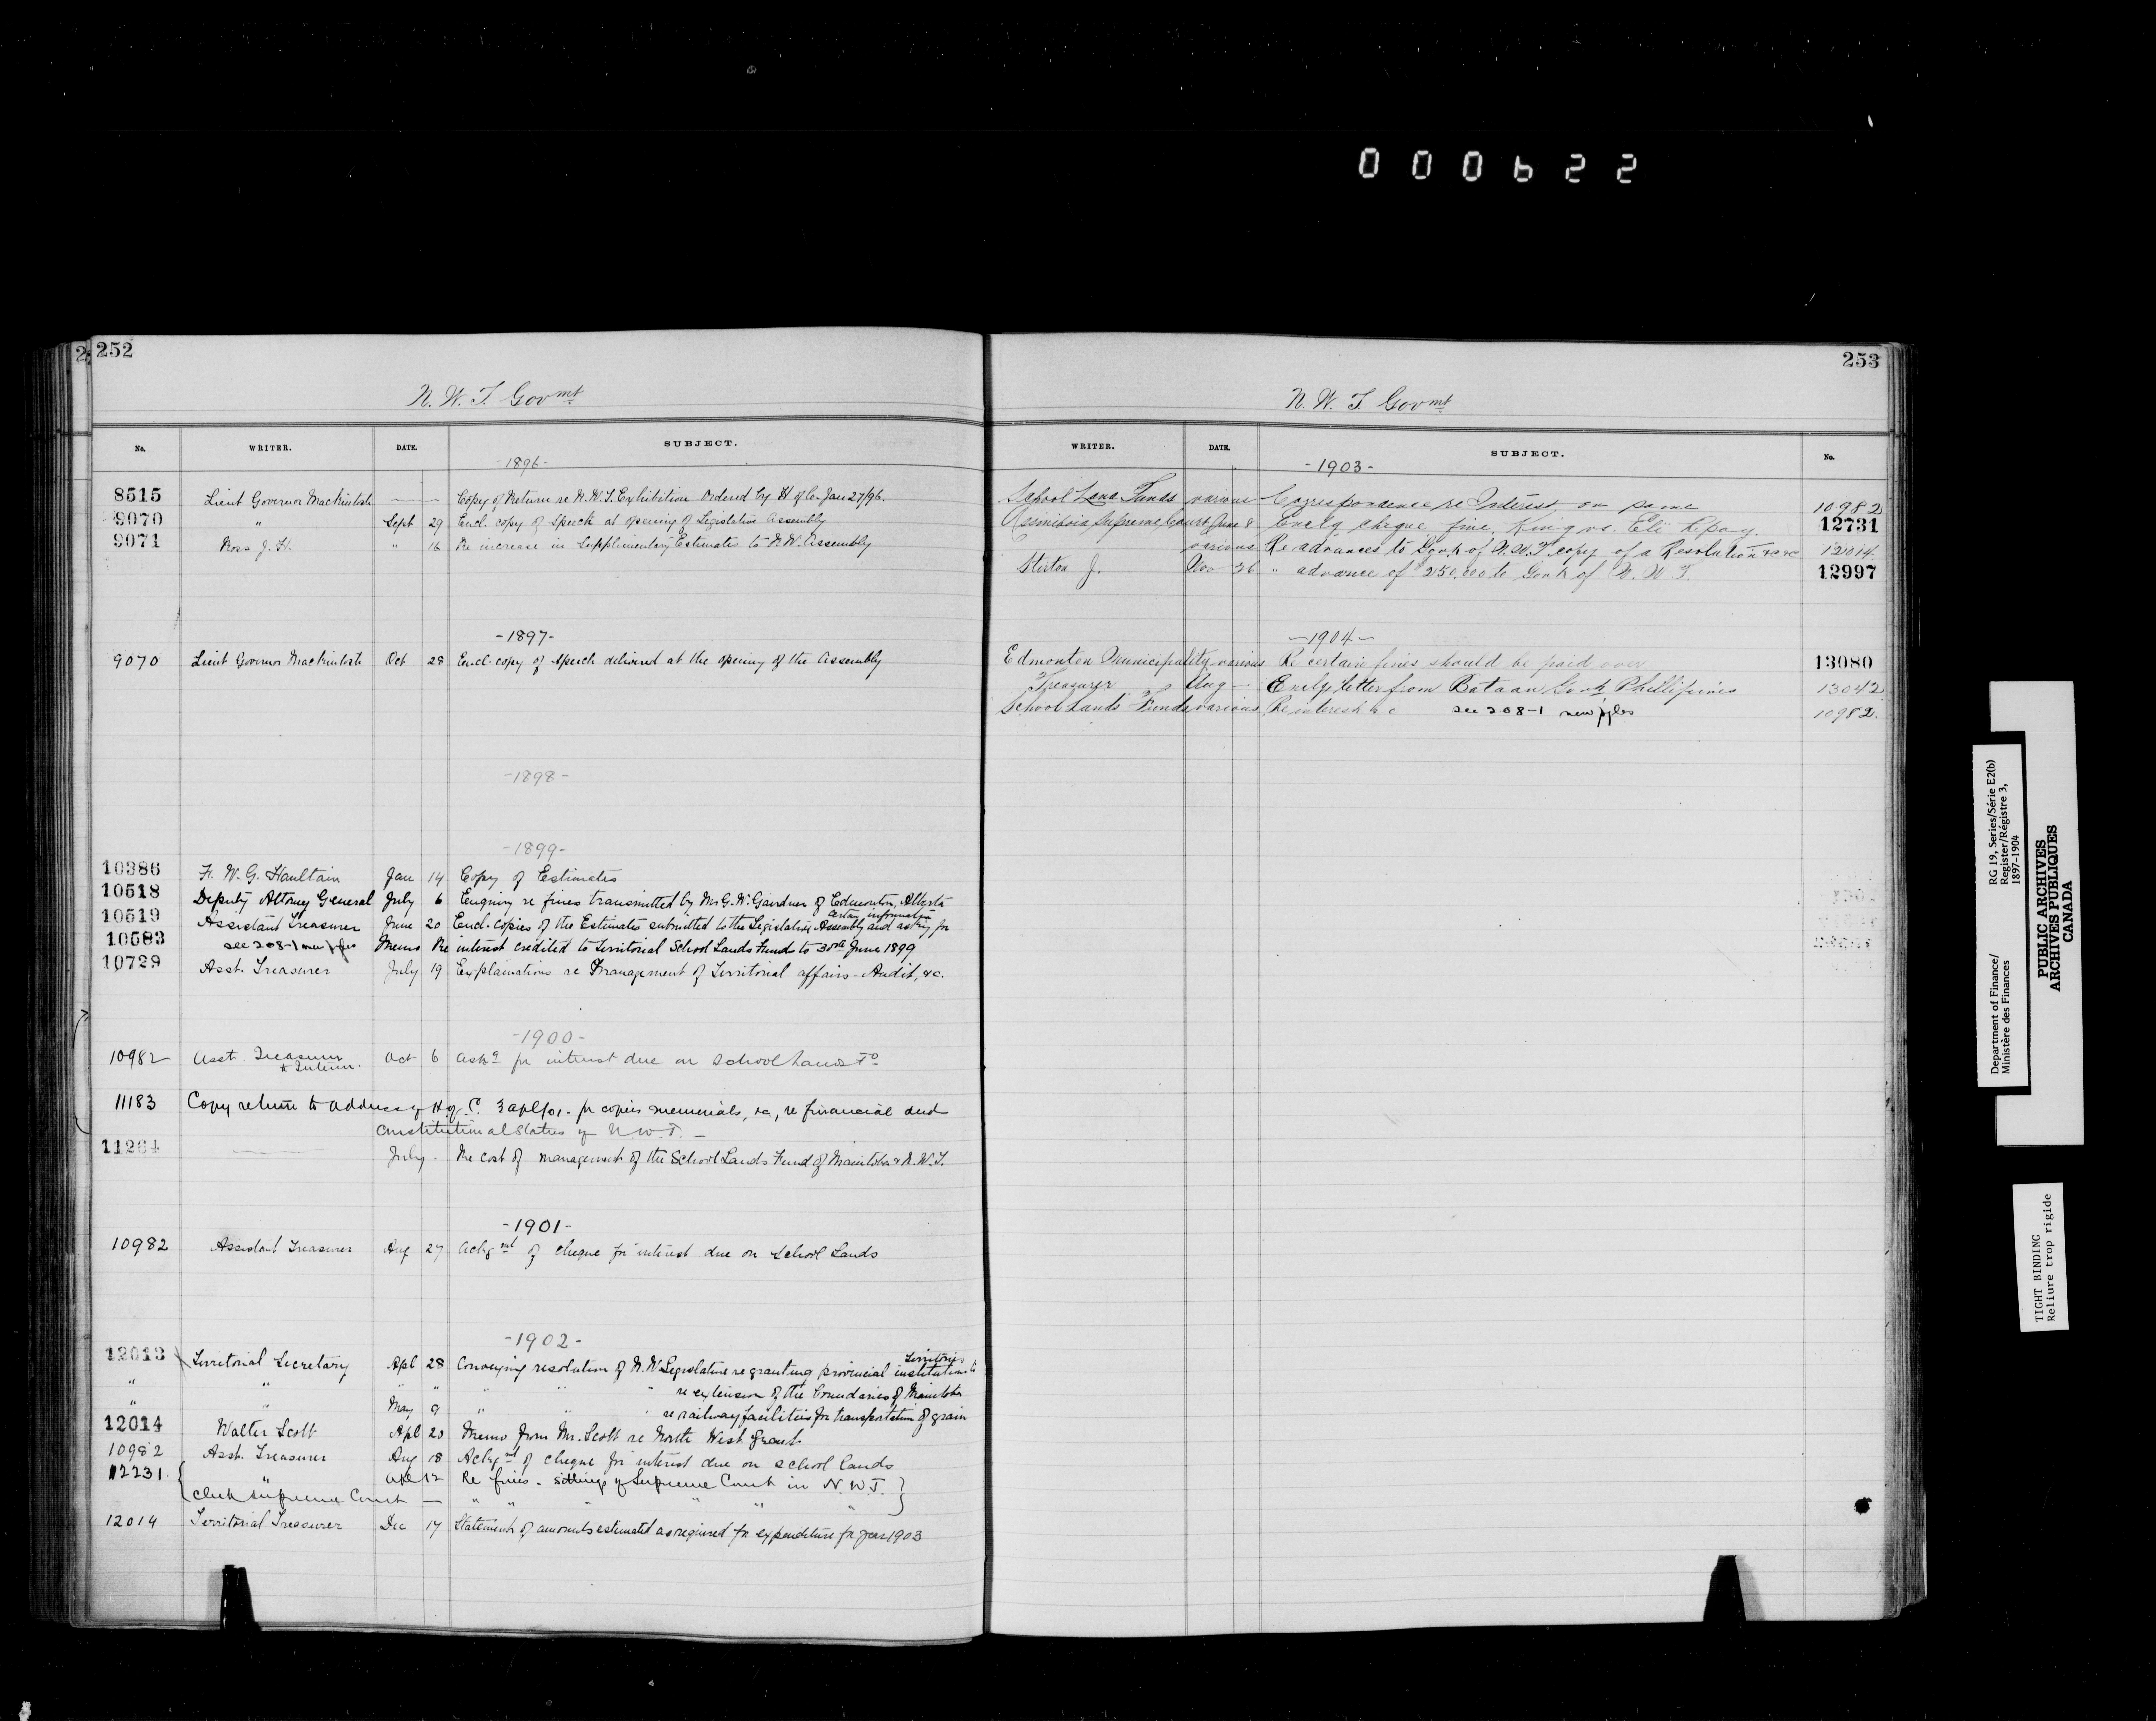 000622
252
N. W. T. Govmt
No. WRITER. DATE. SUBJECT.
-1896-
8515 Lieut Governor Mackintosh Copy of Return re N.W.T. Exhibition Ordered by H of C. Jan 27/96.
9070 " Sept 29 Encl. copy of Speech at opening of Legislative Assembly
9071 Ross J. H. " 16 Re increase in Supplimentary Estimates to N.W. Assembly
-1897-
9070 Lieut Governor Mackintosh Oct 28 Encl. copy of speech delivered at the opening of the Assembly
-1898-
-1899-
10386 F. W. G. Haultain Jan 14 Copy of Estimates
10518 Deputy Attorney General July 6 Enquiry re fines transmitted by Mr G. W. Gairdner of Edmonton, Alberta
10519 Assistant Treasurer June 20 Encl. Copies of the Estimates submitted to the Legislative Assembly and asking for certain information
10583 see 208-1 new files Memo Re interest credited to Territorial School Lands Funds to 30th June 1899
10729 Asst. Treasurer July 19 Explainations re Management of Territorial affairs - Audit, &c.
-1900-
10982 Asst. Treasurer Oct 6 Askg for interest due on School Lands Fd
& Interior.
11183 Copy return to address of H of C. 3 Apl/01 - for copies memorials, &c, re financial and
Constitutional Status of N.W.T. -
11264 July - Re cost of management of the School Lands Fund of Manitoba & N.W.T.
-1901-
10982 Assistant Treasurer Aug 27 Ackgmt of cheque for interest due on School Lands
-1902-
12013 Territorial Secretary Apl 28 Conveying resolution of N.W. Legislature re granting provincial institutions to Territories
" " " " " " " re extension of the boundaries of Manitoba
" " May 9 " " " re railway facilities for transportation of grain
12014 Walter Scott Apl 20 Memo from Mr. Scott re North West Grant
10982 Asst. Treasurer Aug 18 Ackgmt of cheque for interest due on School Lands
12231 " 12 Re fines - sittings of Supreme Court in N.W.T.
Clerk Supreme Court — " " " " " "
12014 Territorial Treasurer Dec 17 Statement of amounts estimated as required for expenditure for year 1903
253
N. W. T Govmt
WRITER. DATE. SUBJECT. No.
-1903-
School Land Funds various Correspondence re Interest on same 10982
Assiniboia Supreme Court June 8 Enclg cheque fine, King vs. Eli 12731
various Re advances to Govt of N.W.T copy of a Resolution &c &c 12014
Nov 26 " advance of $250,000 to Govt of N.W.T. 12997
-1904-
Edmonton Municipality various Re certain fines should be paid over 13080
Treasurer Aug - Enclg letter from Bataan Govt Phillipines 13042
School Lands Funds various Re interest &c see 208-1 new files 10982.
Department of Finance/
Ministère des Finances
RG 19, Series/Série E2(b)
Register/Régistre 3,
1897-1904
PUBLIC ARCHIVES
ARCHIVES PUBLIQUES
CANADA
TIGHT BINDING
Reliure trop rigide